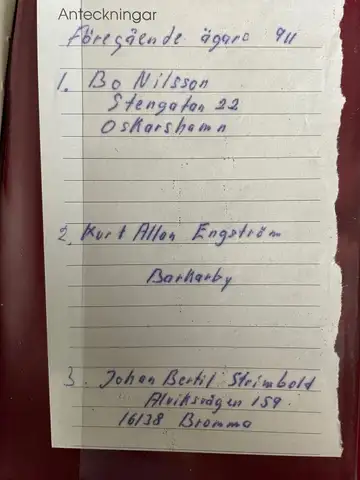 Anteckningar
Föregående ägare 911
1. Bo Nilsson
Stengatan 22
Oskarshamn
2. Kurt Allan Engström
Barkarby
3. Johan Bertil Strimbold
Alviksvägen 159.
16138 Bromma